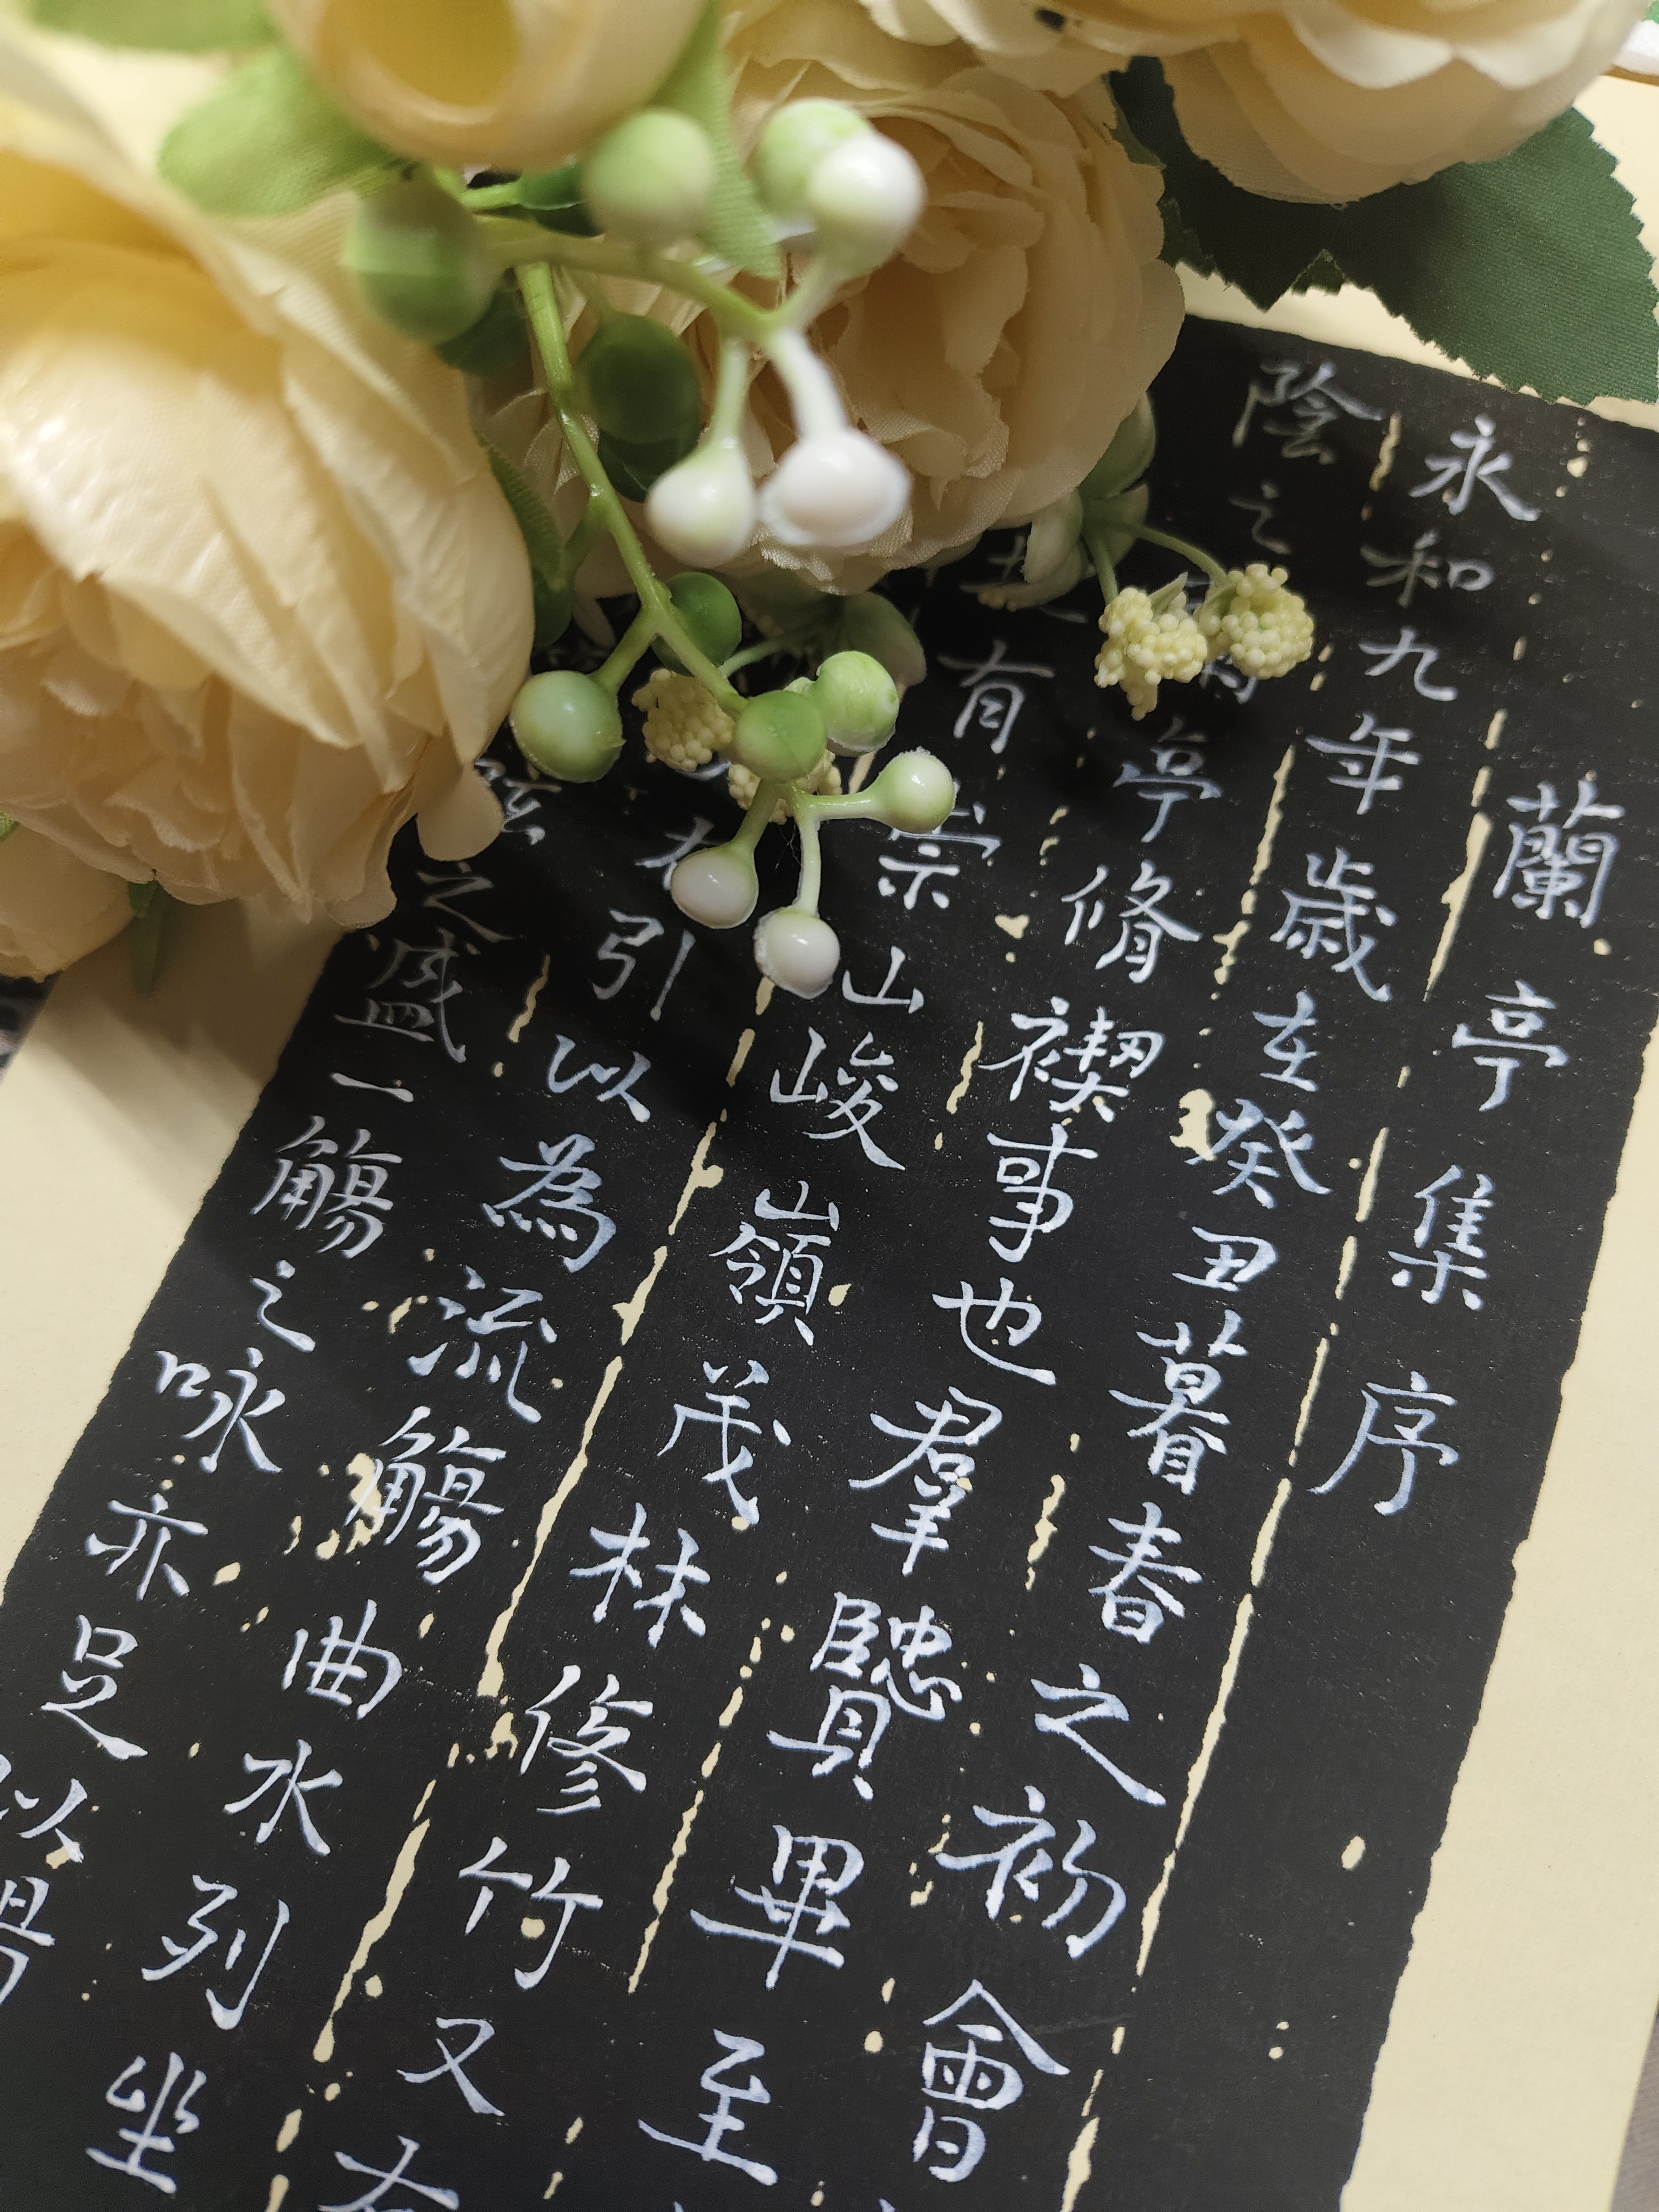 蘭亭集序
永和九年歲在癸丑暮春之初會
陰之亭脩禊事也羣賢畢至
有崇山峻嶺茂林修竹又有
引以為流觴曲水列坐
之盛一觴之咏亦足以